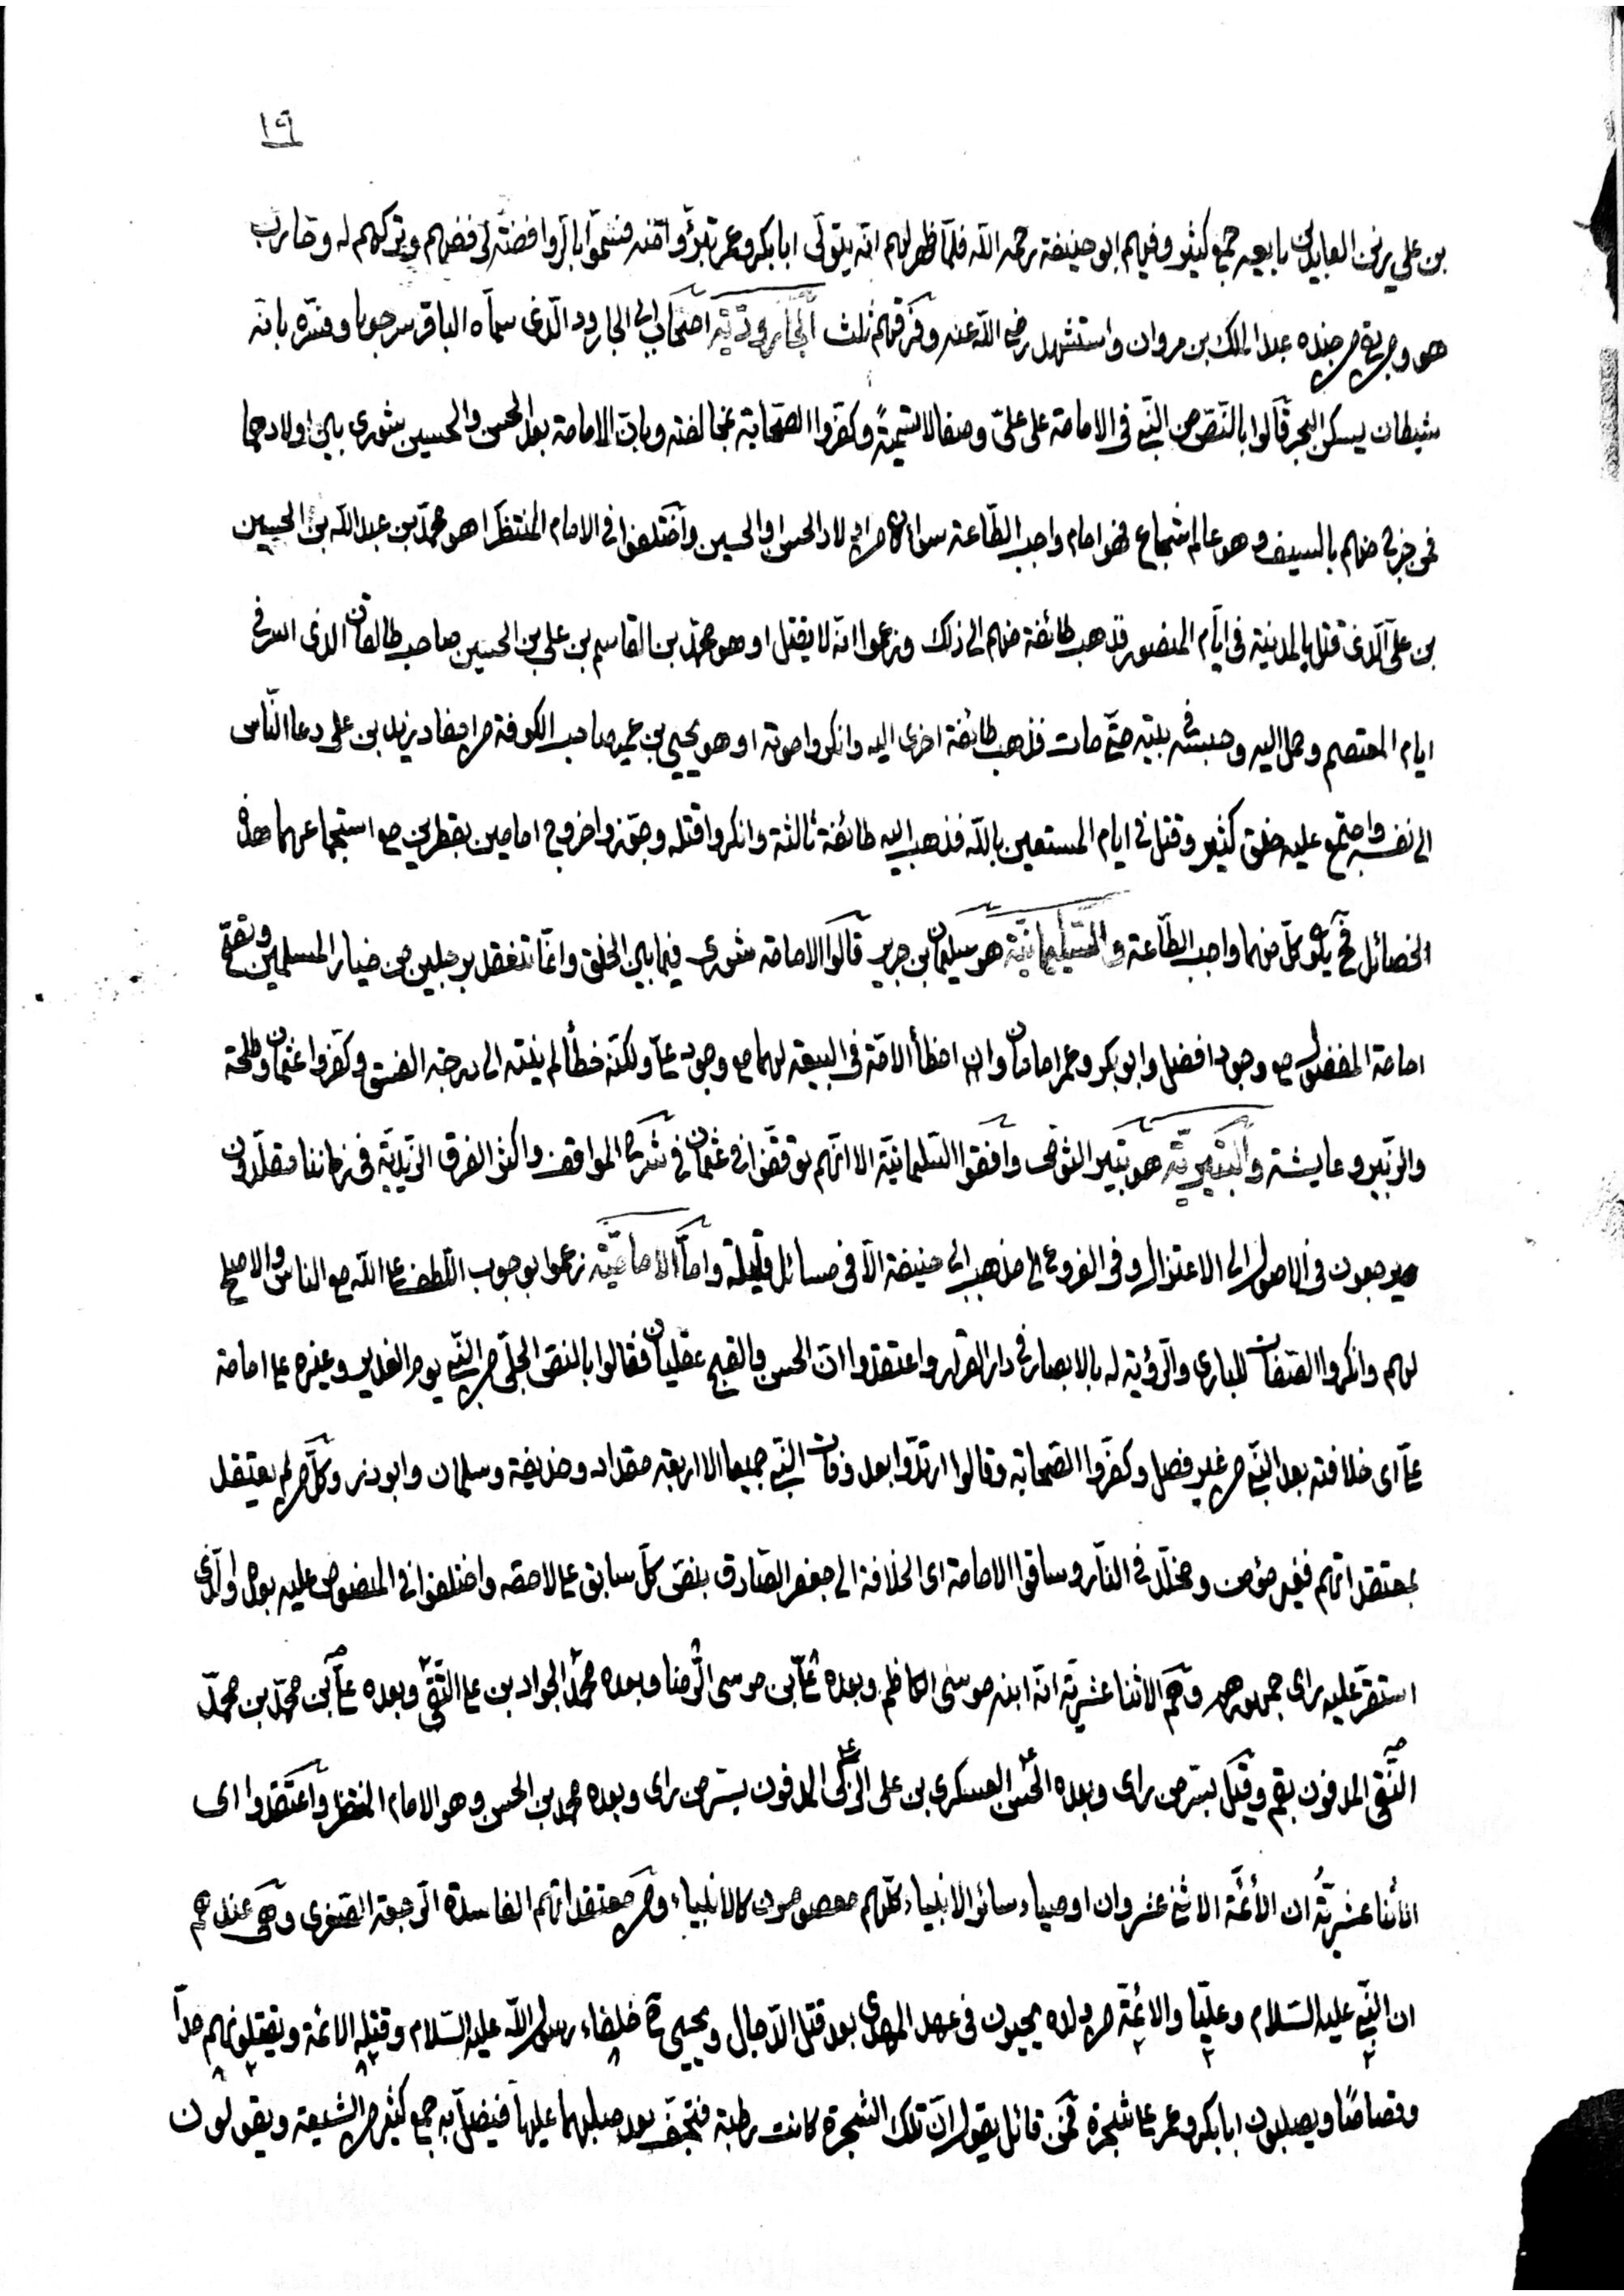 ١٩
بن علي زين العابدين بايعه جمع كثير وفيهم ابو حنيفة رحمه الله فلمّا ظهر لهم انّه يتولّى ابا بكر وعمر تبرّؤوا منه فسُمّوا بالرّوافضة لرفضهم وتركهم له وحارب
هو ومن بقي من جنده عبد الملك بن مروان واستشهد رضي الله عنه وفرقهم ثلث الجاروديّة اصحاب ابي الجارود الّذي سمّاه الباقر سرحوبا وفسّره بانه
شيطان يسكن البحر قالوا بالنّصّ من النّبيّ في الامامة على عليّ وصفا لا تسميةً وكفّروا الصّحابة بمخالفته وبانّ الامامة بعد الحسن والحسين شورى بين اولادهما
فمن خرج منهم بالسيف وهو عالم شجاع فهو امام واجب الطّاعة سواء كان من اولاد الحسن او الحسين واختلفوا في الامام المنتظر اهو محمّد بن عبد الله بن الحسين
بن عليّ الّذي قتل بالمدينة في ايّام المنصور فذهب طائفة منهم الى ذلك وزعموا انّه لا يقتل او هو محمّد بن القاسم بن علي بن الحسين صاحب طالقان الذي اسر في
ايام المعتصم وحمل اليه وحبسه في بيته حتّى مات فذهب طائفة اخرى اليه وانكروا موته او هو يحيى بن عمير صاحب الكوفة من احفاد زيد بن علي دعا النّاس
الى نفسه واجتمع عليه خلق كثير وقتل في ايام المستعين بالله فذهب اليه طائفة ثالثة وانكروا قتله وجوّزوا خروج امامين بقطرين مع استجماعهما هذه
الخصائل فح يكون كلّ منهما واجب الطّاعة والسّليمانيّة هو سليمان بن جرير قالوا الامامة شورى فيما بين الخلق وانّما تنعقد برجلين من خيار المسلمين وتصحّ
امامة المفضول مع وجود افضل وابو بكر وعمر امامان وان اخطأ الامّة في البيعة لهما مع وجود عليّ ولكنّه خطأ لم ينته الى درجة الفسق وكفّروا عثمان وطلحة
والزّبير وعايشة والبتيريّة هو بتير الثومي وافقوا السّليمانيّة الا انّهم توقّفوا في عثمان في شرح المواقف واكثر الفرق الزّيديّة في زماننا مقلّدون
ويرجعون في الاصول الى الاعتزال وفي الفروع الى مذهب ابي حنيفة الّا في مسائل قليلة وامّا الاماميّة زعموا بوجوب اللّطف على الله مع الناس والاصلح
لهم وانكروا الصّفات للباري والرّؤية له بالابصار في دار القرار واعتقدوا انّ الحسن والقبح عقليّان فقالوا بالنصّ الجليّ من النّبيّ يوم الغدير وغيره على امامة
عليّ اى خلافته بعد النّبيّ من غير فصل وكفّروا الصّحابة وقالوا ارتدّوا بعد وفات النّبيّ جميعا الا اربعة مقداد وحذيفة وسلمان وابو ذر وكلّ من لم يعتقد
بمعتقداتهم فغير مؤمن ومخلّد في النّار وساقوا الامامة اى الخلافة الى جعفر الصّادق بنصّ كلّ سابق على لاحقه واختلفوا في المنصوص عليه بعده والّذي
استقرّ عليه راى جمهورهم وهم الاثنا عشريّة انّه ابنه موسى الكاظم وبعده عليّ بن موسى الرّضا وبعده محمّد الجواد بن علي التّقيّ وبعده عليّ بن محمّد بن محمّد
النّقي المدفون بقم وقيل بسرّ من راى وبعده الحسن العسكري بن علي الزّكي المدفون بسرّ من راى وبعده محمد بن الحسن وهو الامام المنتظر واعتقدوا اى
الاثنا عشريّة ان الأئمّة الاثني عشر وان اوصياء سائر الانبياء كلّهم معصومون كالانبياء ومن معتقداتهم الفاسدة الرّجعة الصّغرى وهى عندهم
ان النبّي عليه السّلام وعليّا والائمّة من ولده يحيون في عهد المهدي بعد قتل الدّجال ويحيى خلفاء رسول الله عليه السّلام وقتله الائمة ويقتلونهم حدّا
وقصاصًا ويصلبون ابا بكر وعمر على شجرة فمن قائل يقول انّ تلك الشجرة كانت رطبة فتجف بعد صلبهما عليها فيضلّ به جمع كثير من الشيعة ويقولون